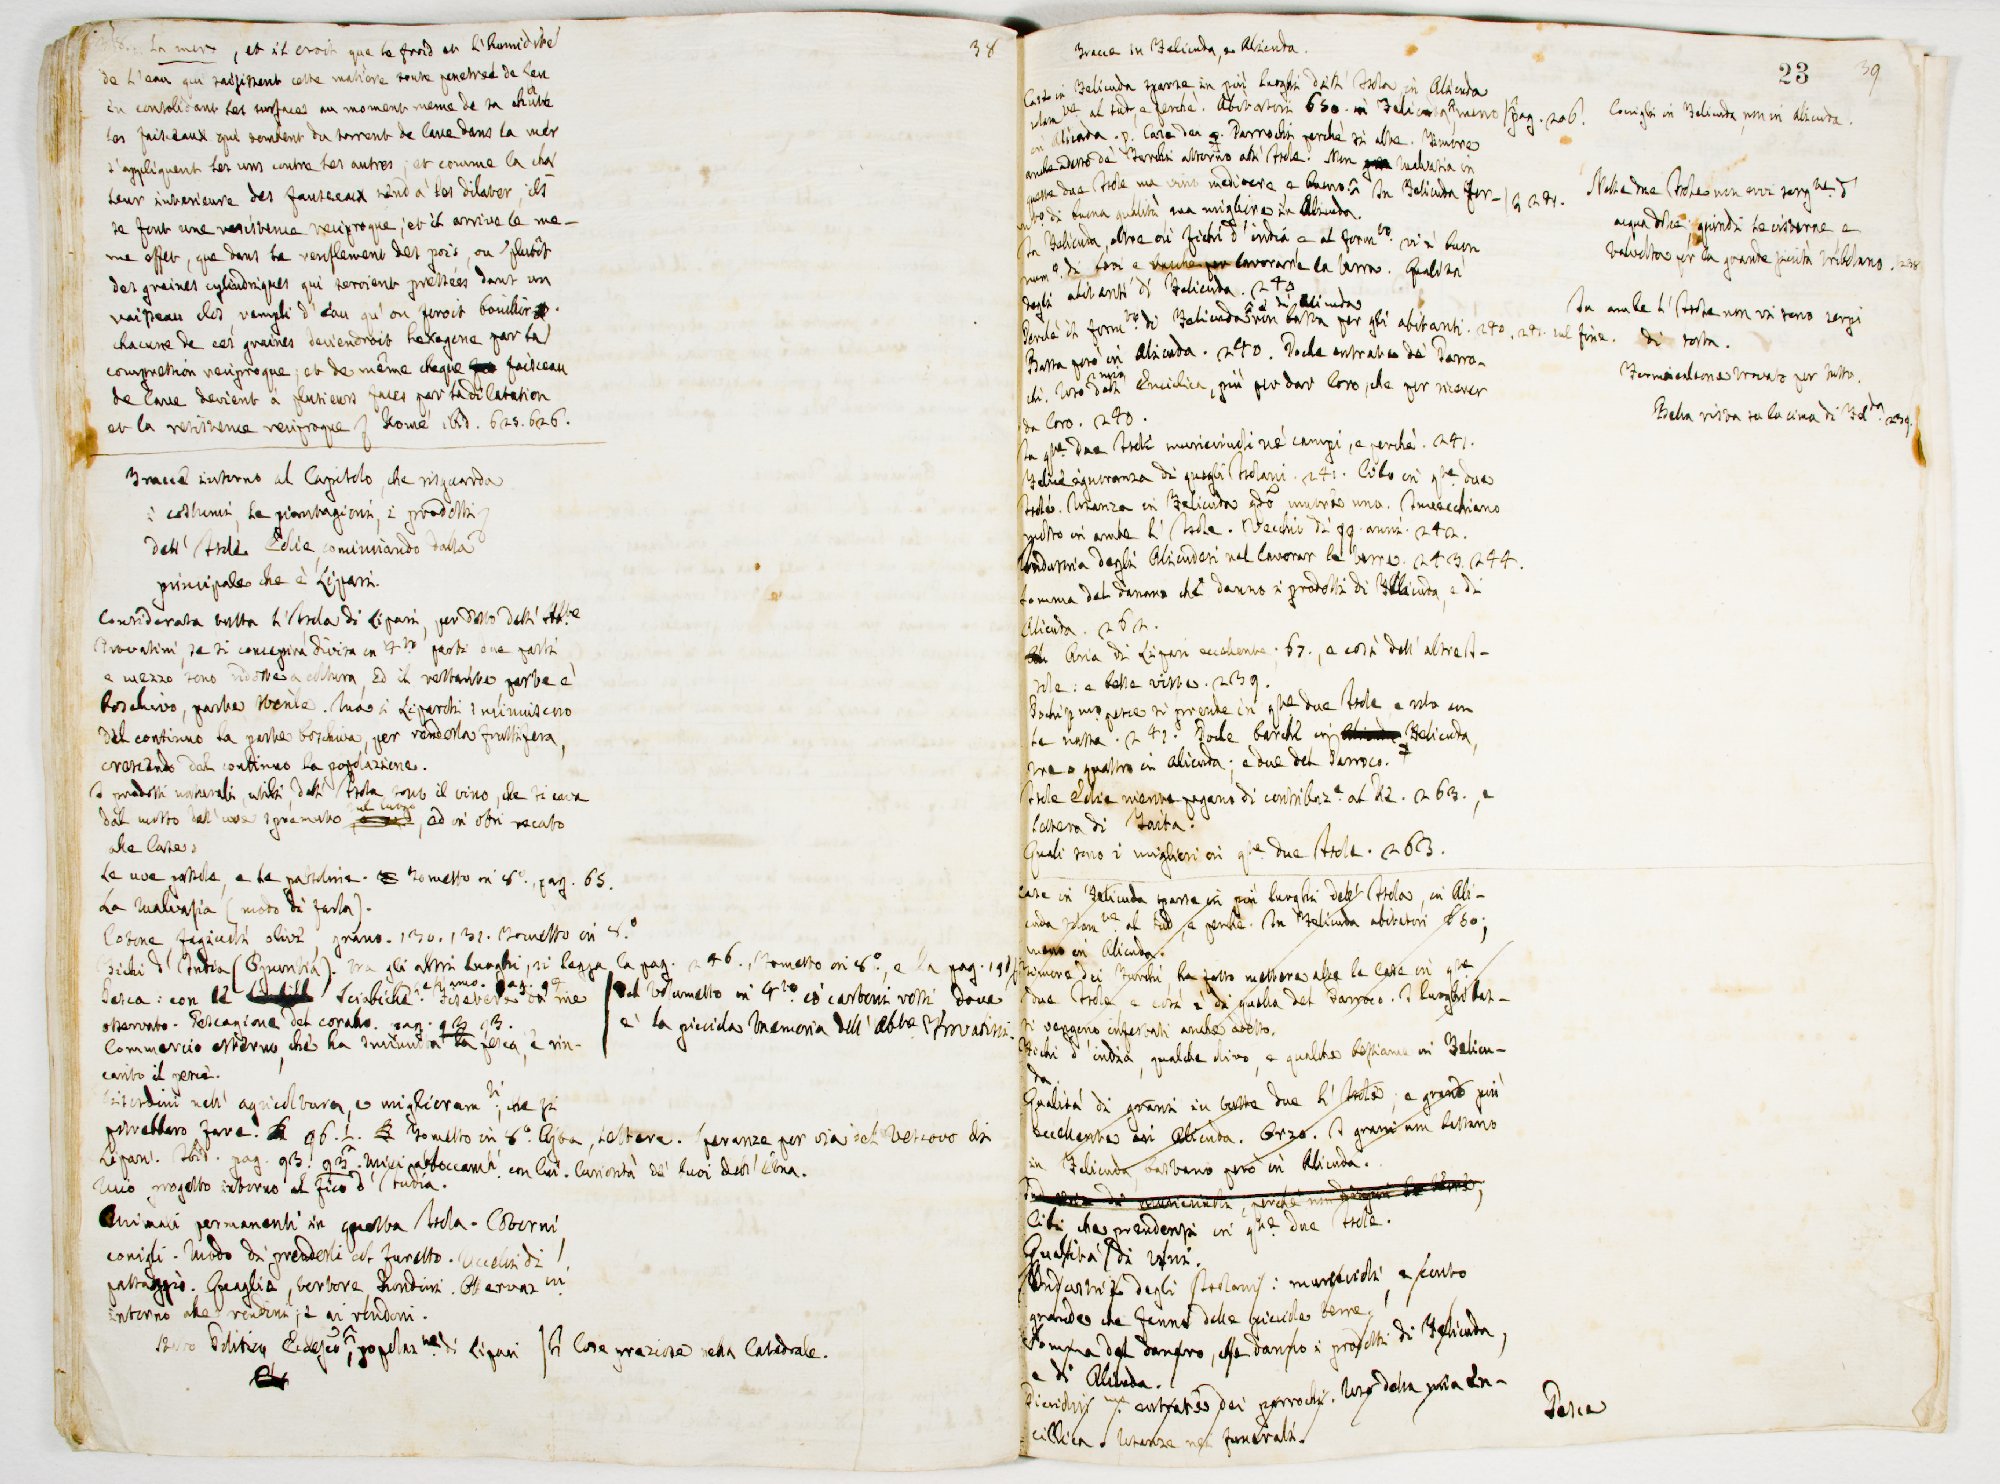 38
la mer, et il croit que le froid et l'humidité
de l'eau qui saisissent cette matiere toute penetreé de feu
en consolidant les surfaces au moment meme de sa chute
les faisceaux qui tombent du torrent de lave dans la mer
s'appliquent les uns contre les autres; et comme la cha
leur interieure des faisceaux tend a les dilater, ils
se font une resistence reciproque; et il arrive le me-
me effet, que dans le renflement des pois, ou plutôt
des graines cylindriques qui seroient presseés dans un
vaisseau clos rempli d'eau qu'on feroit bouillir.
chacune de ces graines deviendroit hexagone par la
compression reciproque; et de même chaque faisceau
de lave devient a plusieurs faces par sa dilatation
et la resistence reciproque. Romé ibid. 625. 626.
Tracce intorno al Capitolo, che risguarda
i costumi, le piantagioni, i prodotti
dell' Isole Eolie, cominciando dalla
principale che è Lipari.
Considerata tutta l'Isola di Lipari, per detto dell' Abbe
Trovatini, se si concepirà divisa in 4tro parti due parti
e mezzo sono ridotte a coltura, ed il restante parte è
boschivo, parte sterile. Ma i Liparoti diminuiscono
del continuo la parte boschiva, per renderla fruttifera,
crescendo del continuo la popolazione.
I prodotti naturali, utili, dell' Isola sono il vino, che si cava
dal mosto dell' uve spremuto sul luogo, ed in otri recato
alle case.
Le uve passole, e le passoline. Tometto in 8º, pag. 65.
La Malvasia (modo di farla).
Cotone fagiuoli olivi, grano. 130. 131. tometto in 8.º
Fichi d'India (Opuntia). tra gli altri luoghi, si legga la pag. 246. tometto in 8º, e la pag. 191
del volumetto in 4to co' cartoni rossi dove
è la picciola memoria dell' Abbe Trovatini.
Pesca: con le Sciabiche. da me
osservato. Pescagione del corallo. pag. 93. 93.
Commercio esterno, che ha diminuita la pesca, e rin-
carito il pesce.
Disordini nell' agricoltura, e miglioramti, che si
potrebbero fare. 96. tometto in 8º. lettere. Speranze per via del Vescovo di
Lipari. Ibid. pag. 93. 93. Miei abboccamti con lui. Curiosità de' suoi dell' Etna.
Mio progetto intorno al fico d'India.
Animali permanenti in questa Isola. Coturni
conigli. Modo di prenderli col furetto. Uccelli di
passaggio. Quaglie, tortore, Rondini. Osservazni
intorno alle rondini, e ai rondoni.
Stato Politico Eccleco, popolazne di Lipari Cose preziose nella Catedrale.
23
39
Tracce in Felicuda, e Alicuda.
Case in Felicuda sparse in più luoghi dell' Isola, in Alicuda
solamte al sud, e perchè. Abitatori 650. in Felicuda, meno pag. 206.
in Alicuda. Case dei Parrochi perchè sì alte. Timore
anche adesso de' Turchi attorno all' Isole. Non malvasia in
queste due Isole ma vino mediocre e buono. In Felicuda for-
mto di buona qualità, ma migliore in Alicuda.
In Felicuda, oltre ai fichi d'india e al formto. vi è buon
numº di bovi e vacche per lavorarne la terra. Qualità
degli abitanti di Felicuda. 240
Perchè il formto. di Felicuda e di Alicuda non basta per gli abitanti. 240. 241. sul fine.
Basta però in Alicuda. 240. Poche entrate de' Parro-
chi. Uso della mia Enciclica, più per dar loro, che per ricever
da loro. 240.
In qte due Isole muricciuoli ne' campi, e perchè. 241.
Felice ignoranza di quegli Isolani. 241. Cibo in qte due
Isole. Usanza in Felicuda qdo muore uno. Invecchiano
molto in ambe l'Isole. Vecchio di 99 anni. 242.
Industria degli Alicudesi nel lavorar le terre. 243. 244.
Somma del danaro che danno i prodotti di Felicuda, e di
Alicuda. 262.
Aria di Lipari eccellente. 67., e così dell' altre I-
sole: e belle viste. 239.
Pochissmo pesce si prende in qte due Isole e solo con
le nasse. 242. Poche barche in Felicuda,
tre o quattro in Alicuda; e due del Parroco.
Isole Eolie niente pagano di contribuze al Re. 263., e
lettera di Jaita.
Quali sono i migliori in qte due Isole. 263.
Case in Felicuda sparse in più luoghi dell' Isola, in Ali-
cuda solamte al sud, e perchè. In Felicuda abitatori 650;
meno in Alicuda.
Timore dei Turchi ha fatto mettere alte le case in qte
due Isole e così è di quella del Parroco. I luoghi bas-
si vengono infestati anche adesso.
Fichi d'india, qualche olivo, e qualche bestiame in Felicu-
da.
Qualità di grani in tutte due l'Isole; e grano più
eccellente in Alicuda. Orzo. I grani non bastano
in Felicuda, bastano però in Alicuda.
Cibi che prendonsi in qte due Isole.
Qualità di vini.
Industria degli Isolani: muricciuoli, e conto
grande che fanno delle picciole terre.
Somma del danaro, che danno i prodotti di Felicuda,
e di Alicuda.
Picciolissme entrate dei parrochi. Uso della mia En-
ciclica. Usanze nei funerali.
Pesca
Conigli in Felicuda, non in Alicuda.
Nelle due Isole non evvi sorgte d'
acqua dolce, quindi le cisterne e
talvolta per la grande siccità tribolano. 238
In ambe l'Isole non vi sono serpi
di sorta.
Formicaleone trovato per tutto.
Bella vista su la cima di Felda. 239.